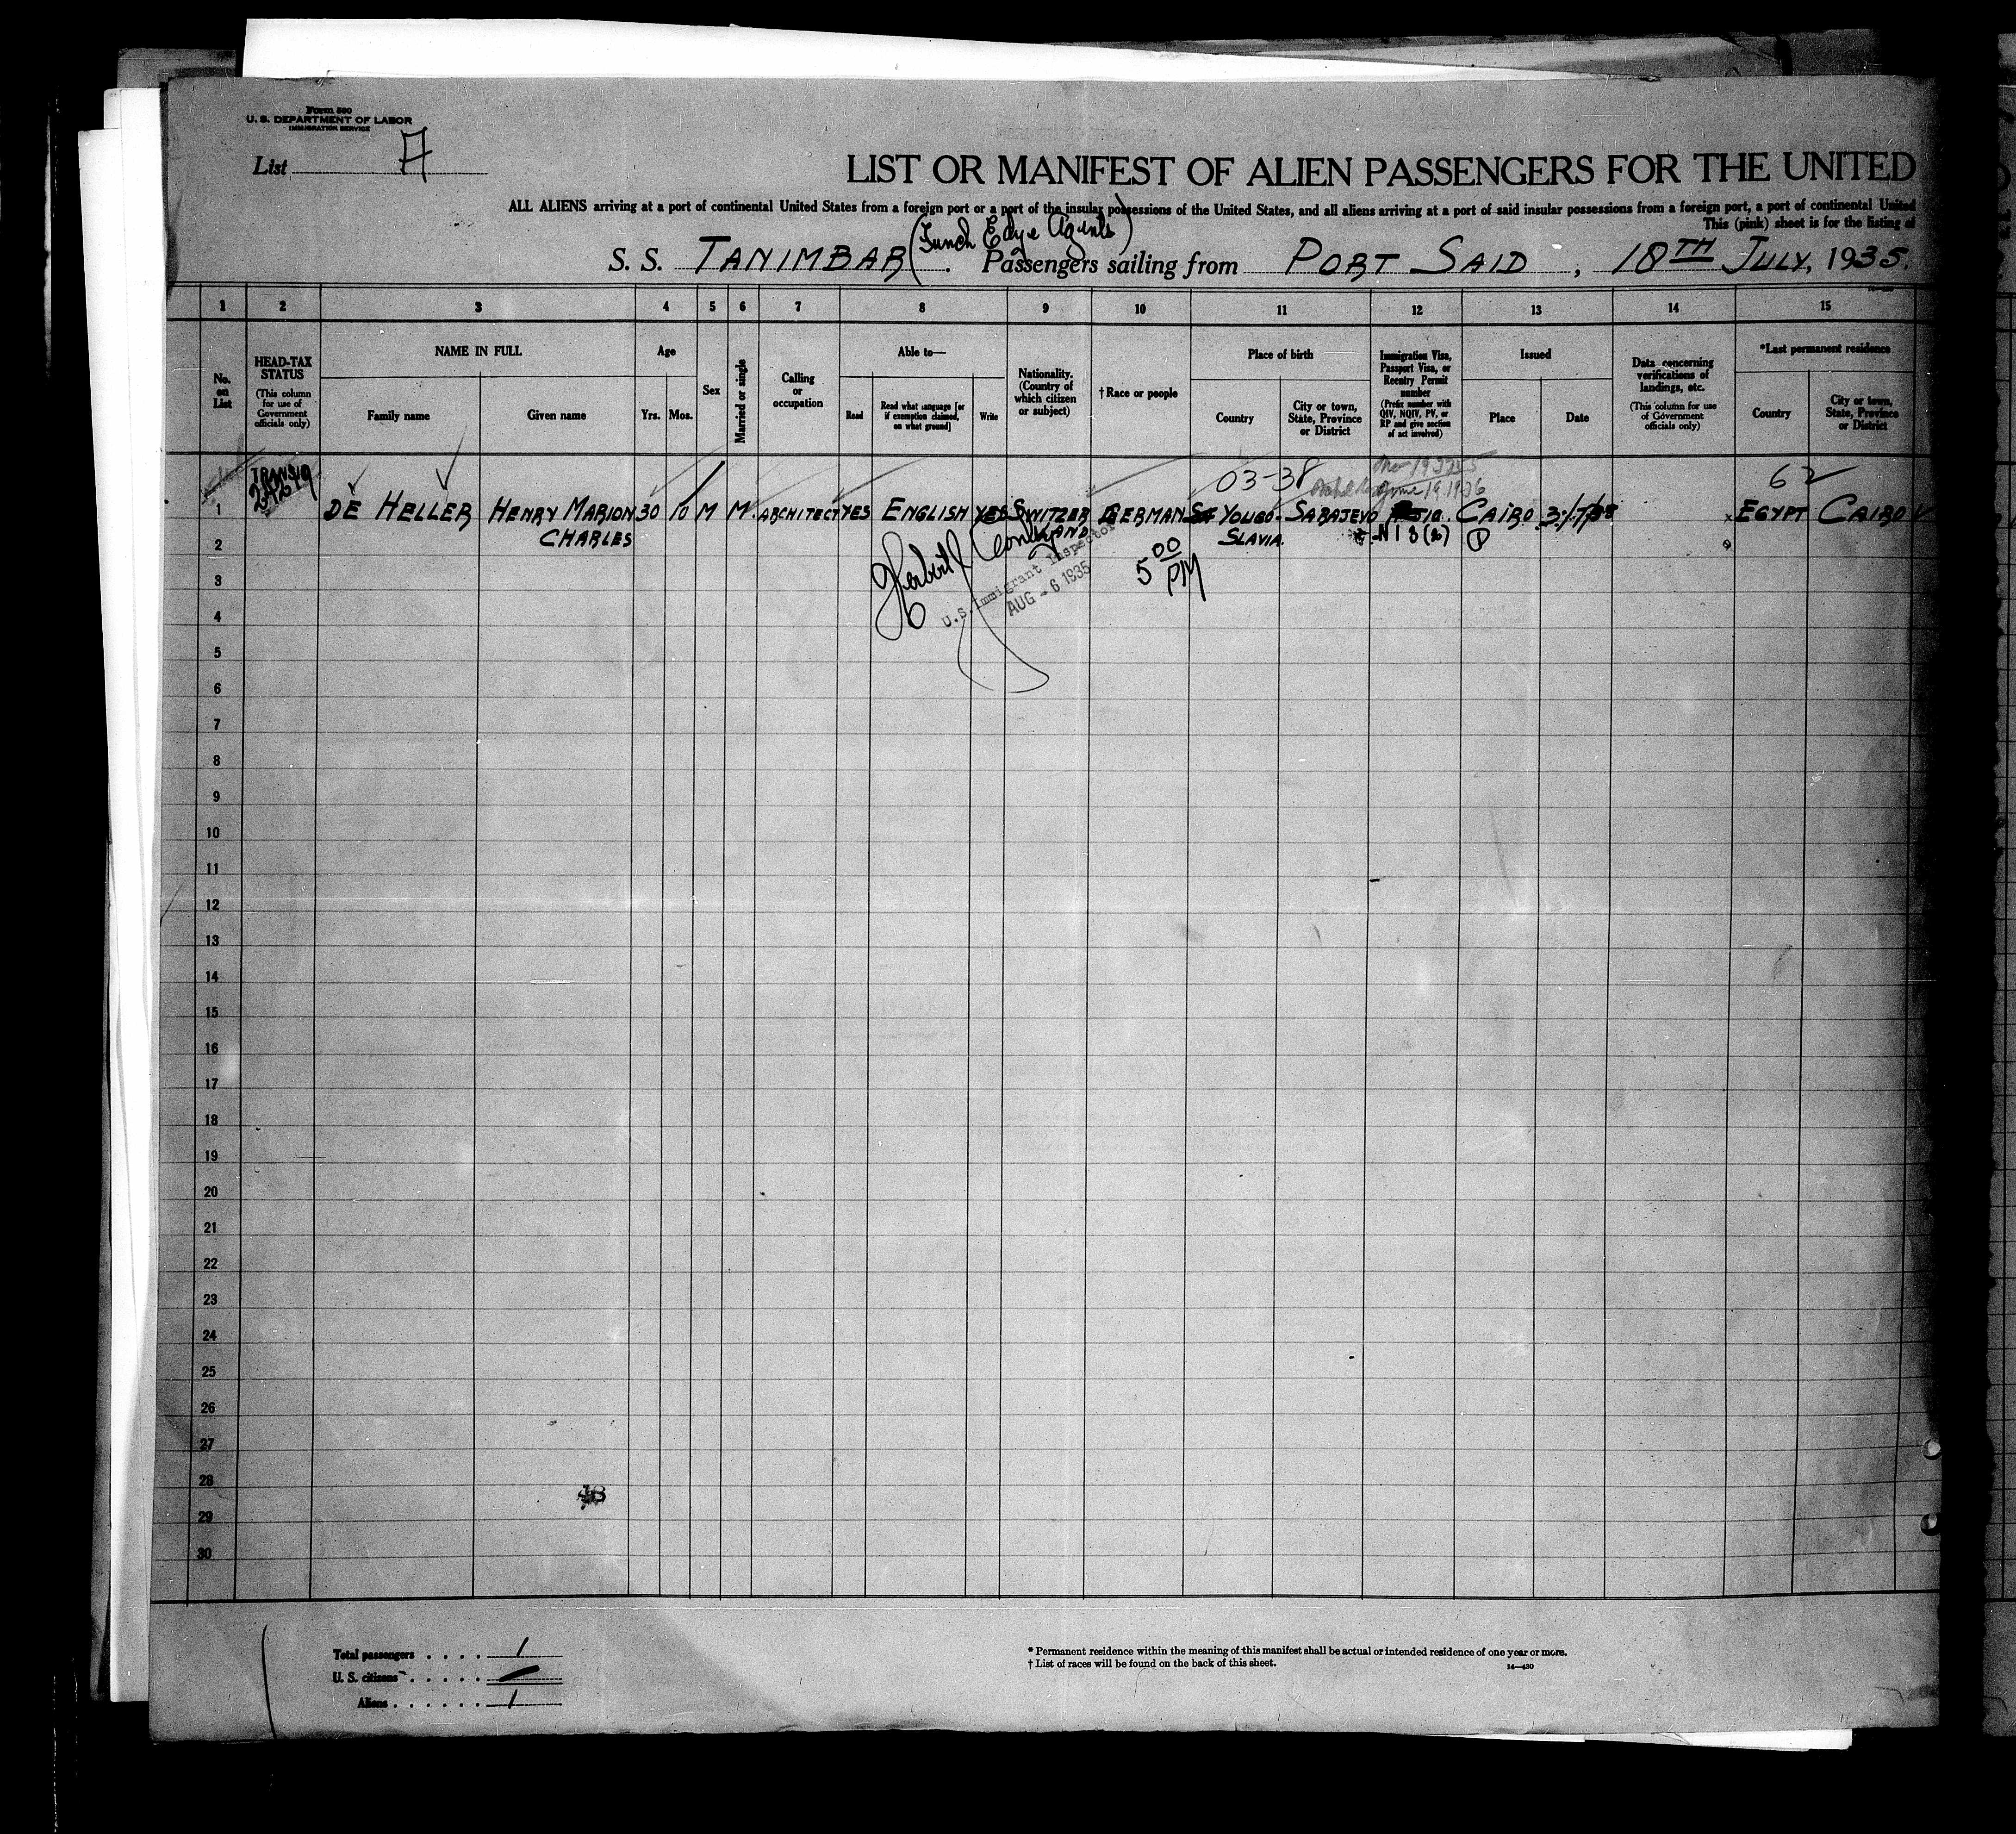 Form 500
U. S. DEPARTMENT OF LABOR
IMMIGRATION SERVICE
List
LIST OR MANIFEST OF ALIEN PASSENGERS FOR THE UNITED
ALL ALIENS arriving at a port of continental United States from a foreign port or a port of the insular possessions of the United States, and all aliens arriving at a port of said insular possessions from a foreign port, a port of continental United
This (pink) sheet is for the listing of
(Funch Edye Agents)
S. S. TANIMBAR. Passengers sailing from PORT SAID, 18TH JULY, 1935.
1 2 3 4 5 6 7 8 9 10 11 12 13 14 15
No. on List
HEAD-TAX STATUS
(This column for use of Government officials only)
NAME IN FULL
Family name
Given name
Age
Yrs.
Mos.
Sex
Married or single
Calling or occupation
Able to—
Read
Read what language [or if exemption claimed, on what ground]
Write
Nationality. (Country of which citizen or subject)
† Race or people
Place of birth
Country
City or town, State, Province or District
Immigration Visa, Passport Visa, or Reentry Permit number
(Prefix number with QIV, NQIV, PV, or RP and give section of act involved)
Issued
Place
Date
Data concerning verifications of landings, etc.
(This column for use of Government officials only)
*Last permanent residence
Country
City or town, State, Province or District
TRANSIT 03-38 62
1 DE HELLER HENRY MARION 30 10 M M. ARCHITECT YES ENGLISH YES SWITZER GERMAN YOUGO- SARAJEVO CAIRO EGYPT CAIRO
CHARLES LAND SLAVIA. N I 3(2)
2
U.S. Immigrant Inspector
AUG - 6 1935
5 00 PM
3
4
5
6
7
8
9
10
11
12
13
14
15
16
17
18
19
20
21
22
23
24
25
26
27
28
29
30
Total passengers . . . . 1
U. S. citizens . . . . . —
Aliens . . . . . . 1
* Permanent residence within the meaning of this manifest shall be actual or intended residence of one year or more.
† List of races will be found on the back of this sheet.
14—430